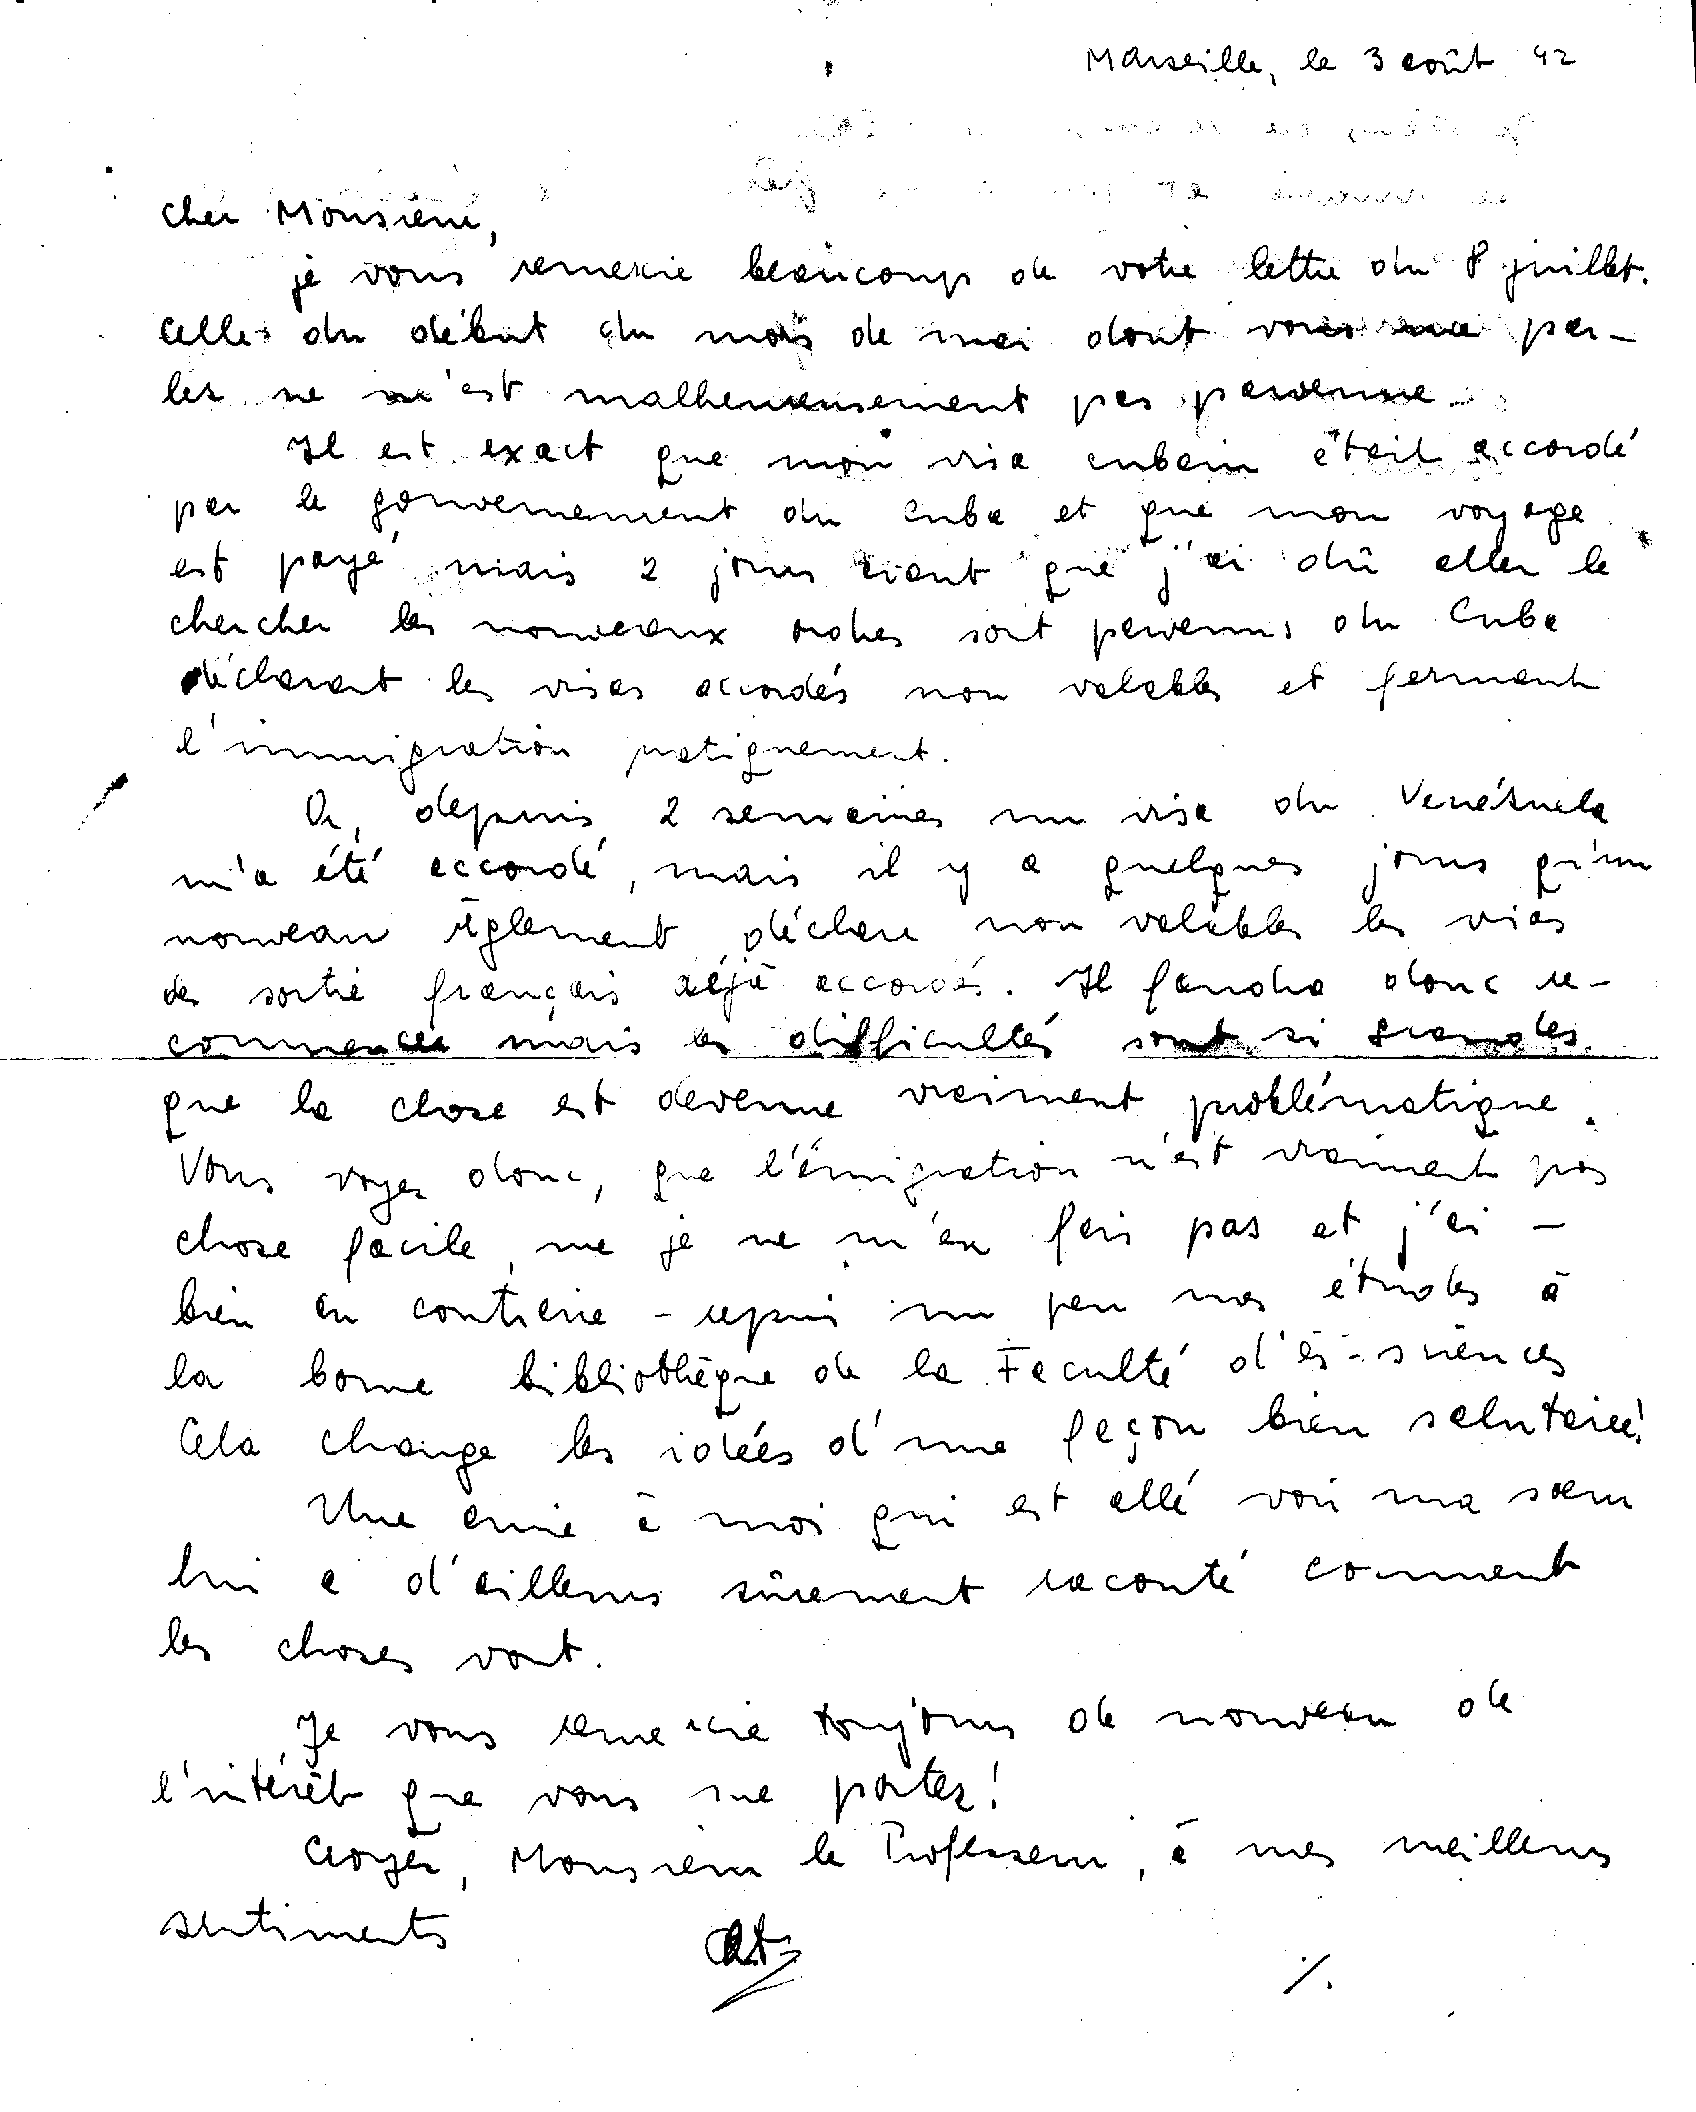 Marseille, le 3 août 42
Cher Monsieur,
je vous remercie beaucoup de votre lettre du 8 juillet.
Celle du début du mois de mai dont vous me par-
lez ne m'est malheureusement pas parvenue.
Il est exact que mon visa cubain était accordé
par le gouvernement du Cuba et que mon voyage
est payé mais 2 jours avant que j'ai dû aller le
chercher les nouveaux ordres sont parvenus du Cuba
déclarant les visas accordés non valables et fermant
l'immigration pratiquement.
Or, depuis 2 semaines un visa du Venézuela
m'a été accordé, mais il y a quelques jours qu'un
nouveau règlement déclare non valables les visas
de sortie français déjà accordés. Il faudra donc re-
commencer mais les difficultés sont si grandes
que la chose est devenue vraiment problématique.
Vous voyez donc, que l'émigration n'est vraiment pas
chose facile, me je ne m'en fais pas et j'ai -
bien au contraire - repris un peu mes études à
la bonne bibliothèque de la Faculté d'ès-sciences
Cela change les idées d'une façon bien salutaire!
Une amie à moi qui est allé voir ma sœur
lui a d'ailleurs sûrement raconté comment
les choses vont.
Je vous remercie toujours de nouveau de
l'intérêt que vous me portez!
Croyez, Monsieur le Professeur, à mes meilleurs
sentiments
./.